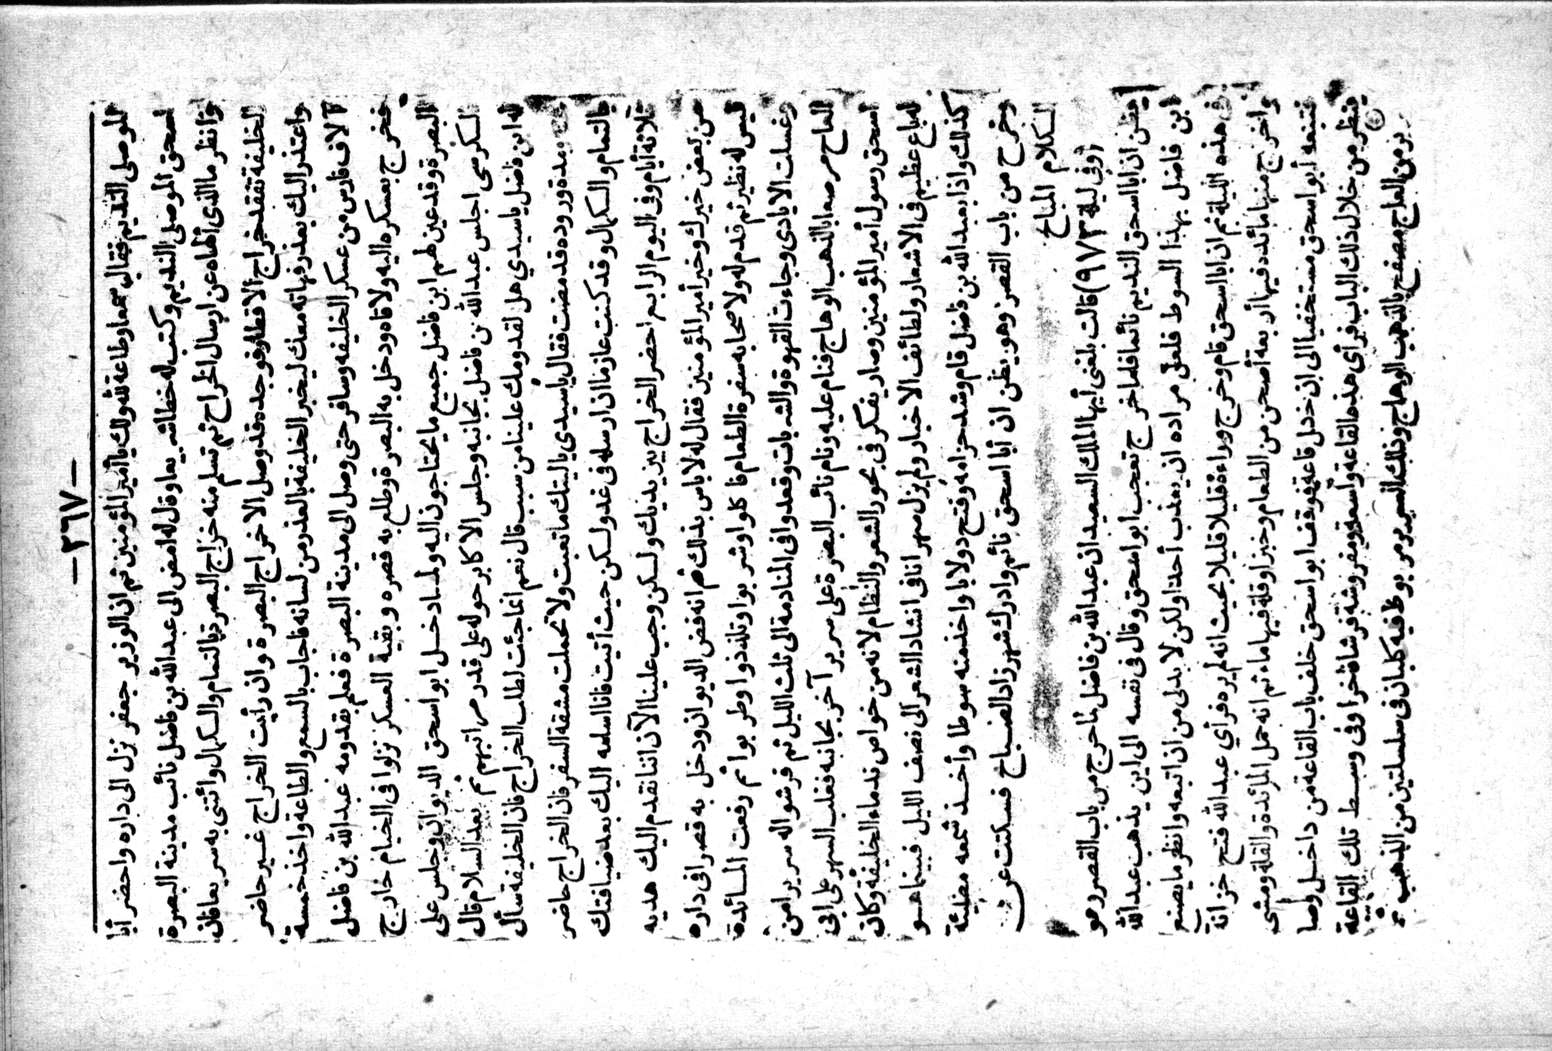 — ٣٦٧ —
الموصلى النديم فقال سمعا وطاعة لله ولك يا أمير المؤمنين ثم ان الوزير جعفر نزل الى داره واحضر أبا
اسحق الموصلى النديم وكتب له خطا شريعا وقل له امض الى عبد الله بن فاضل نائب مدينة البصرة
وانظر ما الذى ألهاه عن ارسال الخراج ثم تسلم منه خراج البصرة بالتمام والكمال وائتنى به سريعا فان
الخليفة تفقد خراج الاقطار فوجده قد وصل الا خراج البصرة وان رأيت الخراج غير حاضر
واعتذر اليك بعذر فهاته معك ليخبر الخليفة بالعذر من لسانه فاجاب بالسمع والطاعة واخذ خمسة
آلاف فارس من عسكر الخليفة وسافر حتى وصل الى مدينة البصرة فعلم بقدومه عبد الله بن فاضل
فخرج بعسكره اليه ولاقاه ودخل به البصرة وطلع به قصره وبقية العسكر نزلوا فى الخيام خارج
البصرة وقد عين لهم ابن فاضل جميع ما يحتاجون اليه ولما دخل ابو اسحق الديوان وجلس على
الكرسى اجلس عبد الله بن فاضل بجانبه وجلس الا كابر حوله على قدر مراتبهم ثم بعد السلام قال
له ابن فاضل ياسيدي هل لقدومك علينا من سبب قال نعم انما جئت لطلب الخراج فان الخليفة سأل
عنه ومدة وروده قد مضت فقال ياسيدى ياليتك ما تعبت ولا تحملت مشقة السفر فان الخراج حاضر
بالتمام والكمال وقد كنت عازما ان ارسله فى غد ولكن حيث أتيت فانا اسلمه اليك بعد ضيافتك
ثلاثة أيام وفى اليوم الرابع احضر الخراج بين يديك ولكن وجب علينا الآن اننا نقدم اليك هدية
من بعض خيرك وخير أمير المؤمنين فقال له لا باس بذلك ثم انه فض الديوان ودخل به قصرا فى داره
ليس له نظير ثم قدم له ولا صحابه سفرة الطعام فا كلوا وشربوا وتلذذوا وطربوا ثم رفعت المائدة
وغسلت الايادى وجاءت القهوة والشربات وقعدوا فى المنادمة الى ثلث الليل ثم فرشوا له سريرا من
العاج مرصعا بالذهب الوهاج فنام عليه ونام نائب البصرة على سرير آخر بجانبه فغلب السهر على ابى
اسحق رسول أمير المؤمنين وصار يفكر فى بحور الشعر والنظام لانه من خواص ندماء الخليفة وكان
له باع عظيم فى الاشعار ولطائف الاخبار ولم يزل سهرانا فى انشاد الشعر الى نصف الليل فبينما هو
كذلك واذا بعبد الله بن فاضل قام وشد حزامه وفتح دولابا واخذ منه سوطا وأخذ شمعه مضيئة
وخرج من باب القصر وهو يظن ان أبا اسحق نائم وادرك شهرزاد الصباح فسكتت عن
الكلام المباح
(وفى ليلة ٩٧٣) قالت بلغنى أيها الملك السعيد ان عبد الله بن فاضل لما خرج من باب القصر وهو
يظن ان ابا اسحق النديم نائما فلما خرج تعجب ابو اسحق وقال فى نفسه الى اين يذهب عبد الله
بن فاضل بهذا السوط فلعل مراده ان يعذب أحدا ولكن لا بدلى من ان اتبعه وانظر ما يصنع
فى هذه الليلة ثم ان ابا اسحق قام وخرج وراءه قليلا قليلا بحيث انه لم يره فرأي عبد الله فتح خزانة
واخرج منها مائده فيها أربعة أصحن من الطعام وخبزا وقلة فيها ماء ثم انه حمل المائدة والقلة ومشى
فتبعه أبو اسحق مستخفيا الى ان دخل قاعة فوقف ابو اسحق خلف باب القاعة من داخل وصا
ينظر من خلال ذلك الباب فرأى هذه القاعة واسعة ومفروشة فرشا فاخرا وفى وسط تلك القاعة
ير من العاج مصفح بالذهب الوهاج وذلك السرير مربوط فيه كلبان فى سلسلتين من الذهب ثم